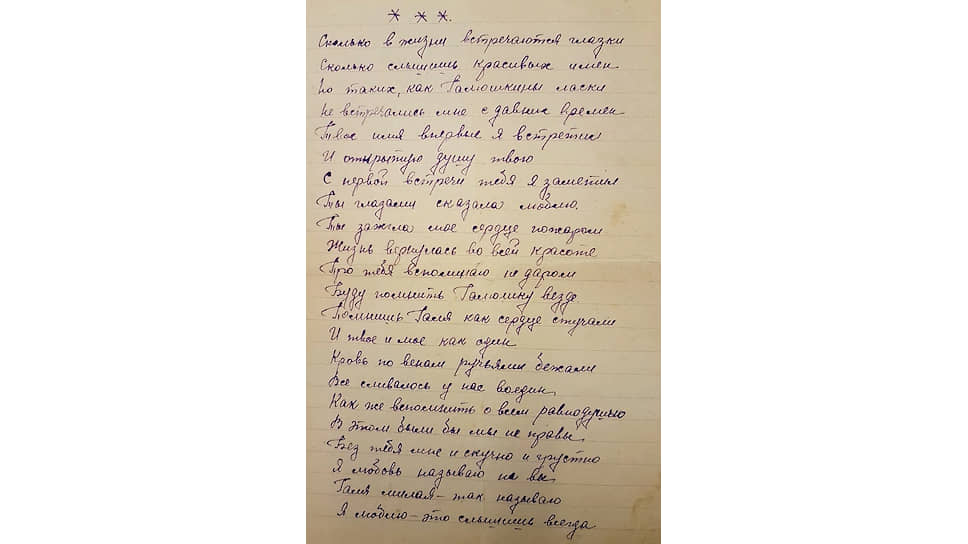 * * *.
Сколько в жизни встречаются глазки
Сколько слышишь красивых имен
Но таких, как Галюшкины ласки
Не встречались мне с давних времен
Твое имя впервые я встретил
И открытую душу твою
С первой встречи тебя я заметил
Ты глазами сказала люблю.
Ты зажгла мое сердце пожаром
Жизнь вернулась во всей красоте
Про тебя вспоминаю не даром
Буду помнить Галюлину везде.
Помнишь Галя как сердце стучали
И твое и мое как один
Кровь по венам ручьями бежали
Все сливалось у нас воедин,
Как же вспомнить о всем равнодушно
В этом были бы мы не правы.
Без тебя мне и скучно и грустно
Я любовь называю на вы
Галя милая - так называю
Я люблю - это слышишь всегда